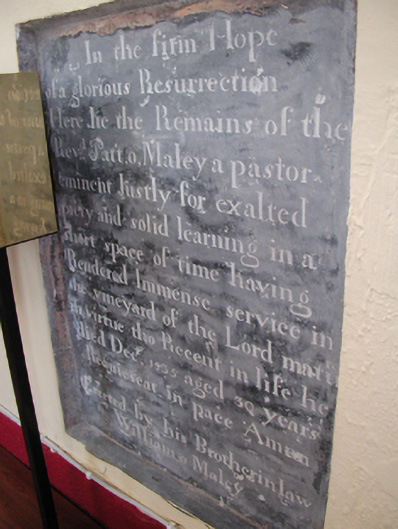 In the firm Hope
of a glorious Resurrection
Here lie the Remains of the
Revd. Patt. O, Maley a pastor
eminent Justly for exalted
piety and solid learning in a
short space of time having
Rendered Immense service in
the vineyard of the Lord matu
in virtue tho Recent in life he
died Decr. aged 39 years
Requiescat in pace Amen
Erected by his Brotherinlaw
William Maley